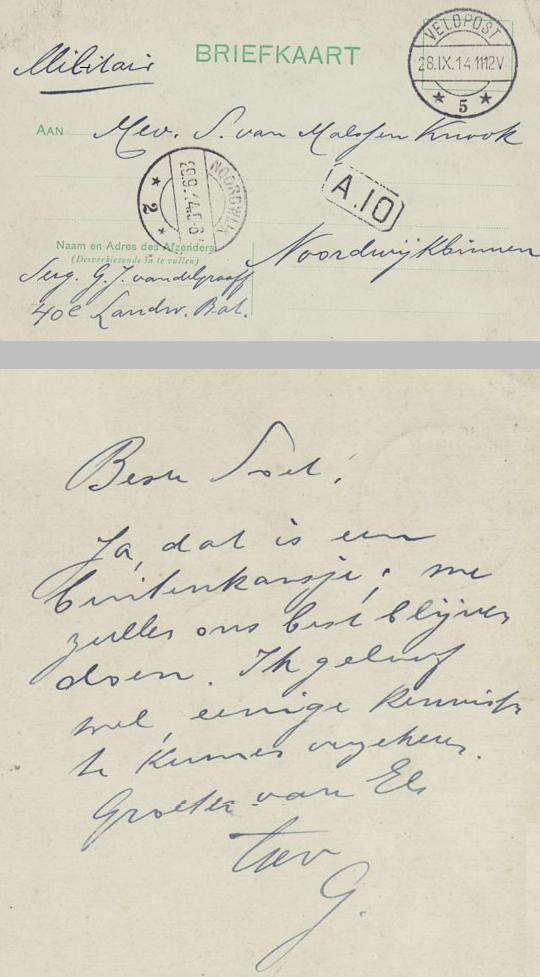 Militair
BRIEFKAART
VELDPOST
28.IX.14.1112V
5
AAN Mev. S. van Malssen Knook
NOORDWIJK
2
A.10
Noordwijkbinnen
Naam en Adres des Afzenders
(Desverkiezende in te vullen)
Serg. G. J. van de Graaff
40e Landw. Bat.
Beste
Ja, dat is een
buitenkansje; we
zullen ons best blijven
doen. Ik geloof
wel, eenige kennis
te kunnen
Groeten van Els
G.